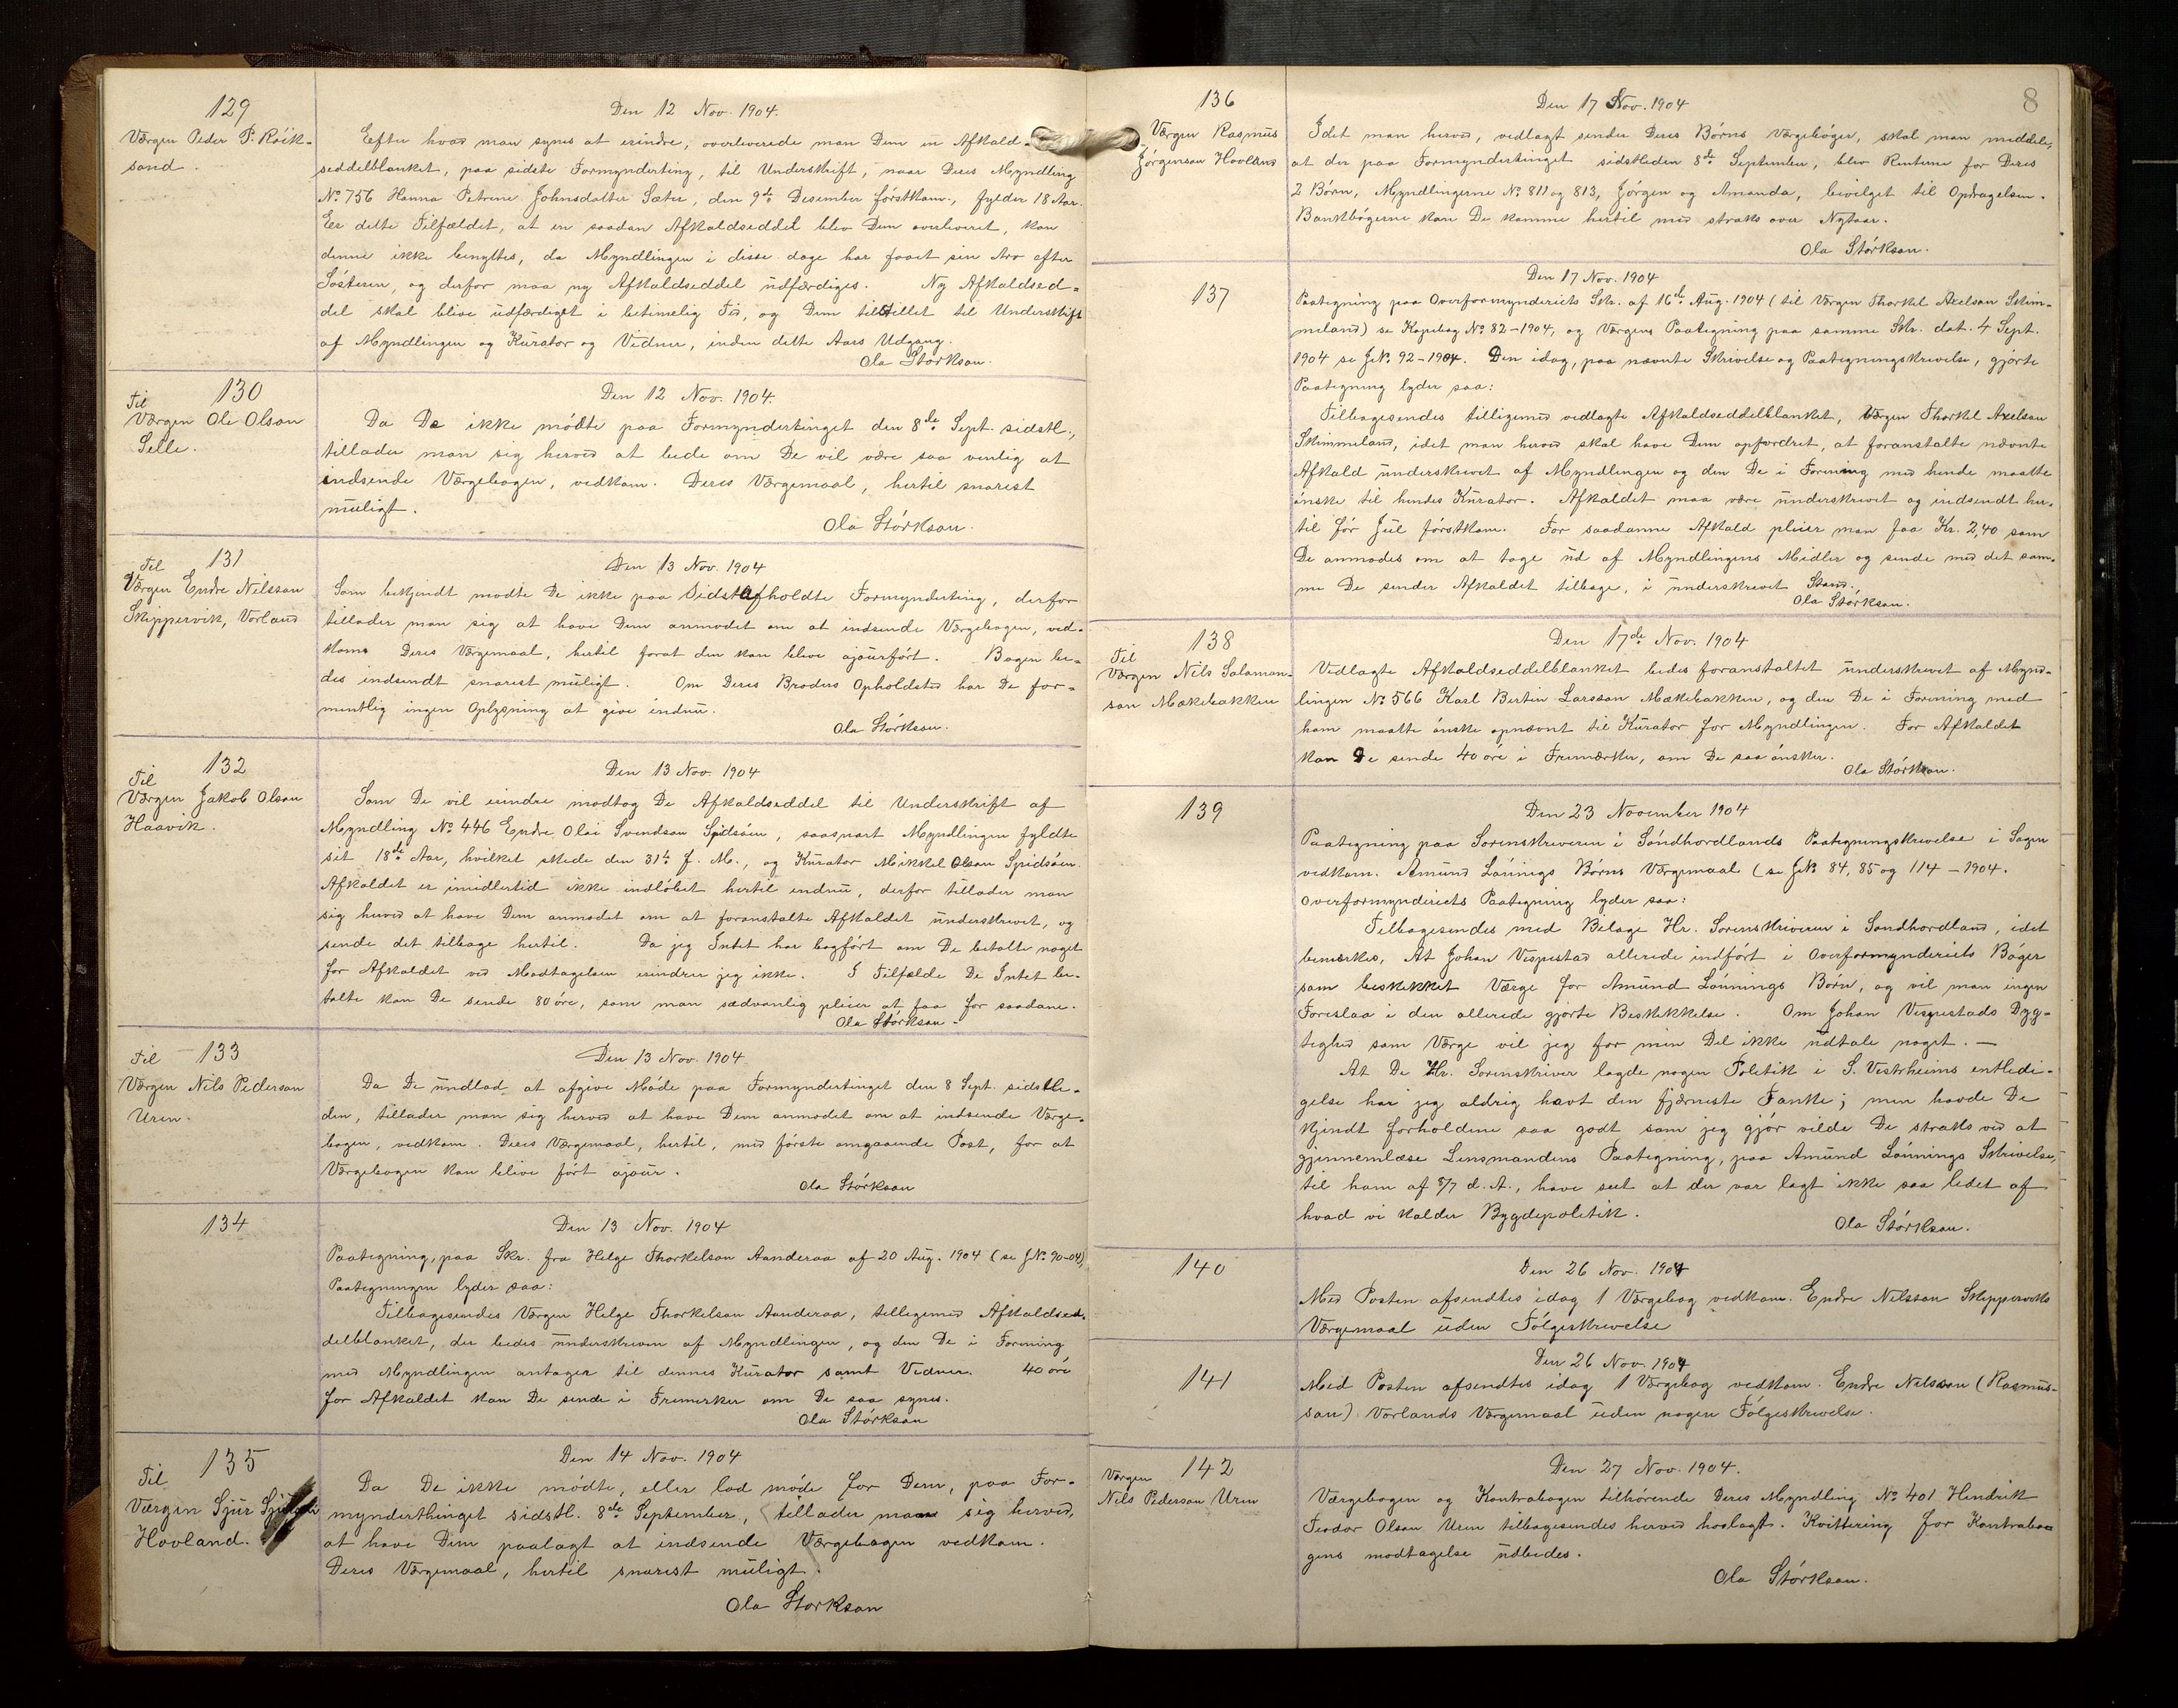 129
Værgen Peder P. Røik-
sand.
Den 12 Nov. 1904.
Efter hvad man synes at erindre, overleverede man Dem en Afkald-
seddelblanket, paa sidste Formynderting, til Underskrift, naar Deres Myndling
No 756 Hanna Petrine Johnsdatter Sæter, den 9de Desember førstkom., fylder 18 Aar.
Er dette Tilfældet, at en saadan Afkaldseddel blev Dem overleveret, kan
denne ikke benyttes, da Myndlingen i disse dage har faaet sin Arv efter
Søsteren, og derfor maa ny Afkaldseddel udfærdiges. Ny Afkaldsed-
del skal blive udfærdiget i betimelig Tid, og Dem tilstillet til Underskrift
af Myndlingen og Kurator og Vidner, inden dette Aars Udgang.
Ola Størkson.
Til 130
Værgen Ole Olson
Selle.
Den 12 Nov. 1904.
Da De ikke mødte paa Formyndertinget den 8de Sept. sidstl.,
tillader man sig herved at bede om De vil være saa venlig at
indsende Værgebogen, vedkom. Deres Værgemaal, hertil snarest
muligt.
Ola Størkson.
Til 131
Værgen Endre Nilsson
Skippervik, Vorland
Den 13 Nov. 1904
Som bekjendt mødte De ikke paa sidstafholdte Formynderting, derfor
tillader man sig at have Dem anmodet om at indsende Værgebogen, ved-
kom. Deres Værgemaal, hertil forat den kan blive ajourført. Bogen be-
des indsendt snarest muligt. Om Deres Broders Opholdsted har De for-
mentlig ingen Oplysning at give endnu.
Ola Størkson.
Til 132
Værgen Jakob Olson
Haavik.
Den 13 Nov. 1904
Som De vil erindre modtog De Afkaldseddel til Underskrift af
Myndling No 446 Endre Olai Svendson Spidsøen, saasnart Myndlingen fyldte
sit 18de Aar, hvilket skede den 31te f. M., og Kurator Mikkel Olson Spidsøen.
Afkaldet er imidlertid ikke indløbet hertil endnu, derfor tillader man
sig herved at have Dem anmodet om at foranstalte Afkaldet underskrevet, og
sende det tilbage hertil. Da jeg Intet har bogført om De betalte noget
for Afkaldet ved Modtagelsen erindrer jeg ikke. I Tilfælde De Intet be-
talte kan De sende 80 øre, som man sædvanlig pleier at faa for saadane.
Ola Størkson.
Til 133
Værgen Nils Pederson
Uren.
Den 13 Nov. 1904
Da De undlod at afgive Møde paa Formyndertinget den 8 Sept. sidstle-
den, tillader man sig herved at have Dem anmodet om at indsende Værge-
bogen, vedkom. Deres Værgemaal, hertil, med første omgaaende Post, for at
Værgebogen kan blive ført ajour.
Ola Størkson
134
Den 13 Nov. 1904
Paategning, paa Skr. fra Helge Thorkelson Aanderaa af 20 Aug. 1904 (se JNo 90-04)
Paategningen lyder saa:
Tilbagesendes Værgen Helge Thorkelson Aanderaa, tilligemed Afkaldsed-
delblanket, der bedes underskreven af Myndlingen, og den De i Forening
med Myndlingen antager til dennes Kurator samt Vidner. 40 øre
for Afkaldet kan De sende i Frimerker om De saa synes.
Ola Størkson
Til 135
Værgen Sjur
Hovland.
Den 14 Nov. 1904
Da De ikke mødte, eller lod møde for Dem, paa For-
mynderthinget sidstl. 8de September, tillader man sig herved,
at have Dem paalagt at indsende Værgebogen vedkom.
Deres Værgemaal, hertil snarest muligt.
Ola Størkson
8
136
Værgen Rasmus
Jørgenson Hovland
Den 17 Nov. 1904
Idet man herved, vedlagt sender Deres Børns Værgebøger, skal man meddele,
at der paa Formyndertinget sidstleden 8de September, blev Renterne for Deres
2 Børn, Myndlingerne No 811 og 813, Jørgen og Amanda, bevilget til Opdragelsen.
Bankbøgerne kan De komme hertil med straks over Nytaar.
Ola Størkson.
137
Den 17 Nov. 1904
Paategning paa Overformynderiets Skr. af 16de Aug. 1904 (til Værgen Thorkel Axelson Skim-
meland) se Kopibog No 82-1904, og Værgens Paategning paa samme Skr. dat. 4 Sept.
1904 se JNo. 92-1904. Den idag, paa nævnte Skrivelse og Paategningskrivelse, gjørte
Paategning lyder saa:
Tilbagesendes tilligemed vedlagte Afkaldseddelblanket, Værgen Thorkel Axelson
Skimmeland, idet man herved skal have Dem opfordret, at foranstalte nævnte
Afkald underskrevet af Myndlingen og den De i Forening med hende maatte
ønske til hendes Kurator. Afkaldet maa være underskrevet og indsendt her-
til før Jul førstkom. For saadanne Afkald pleier man faa Kr. 2,40 som
De anmodes om at tage ud af Myndlingens Midler og sende med det sam-
me De sender Afkaldet tilbage, i underskrevet Stand.
Ola Størkson.
Til 138
Værgen Nils Salamon-
son Mækebakken
Den 17de Nov. 1904
Vedlagte Afkaldseddelblanket bedes foranstaltet underskrevet af Mynd-
lingen No 566 Karl Bertin Larsson Mækebakken, og den De i Forening med
ham maatte ønske opnævnt til Kurator for Myndlingen. For Afkaldet
kan De sende 40 øre i Frimærker, om De saa ønsker.
Ola Størkson.
139
Den 23 November 1904
Paategning paa Sorenskriveren i Søndhordlands Paategningskrivelse i Sagen
vedkom. Amund Lønnings Børns Værgemaal (se JNo 84, 85 og 114 - 1904.
Overformynderiets Paategning lyder saa:
Tilbagesendes med Bilage Hr. Sorenskriveren i Søndhordland, idet
bemærkes, At Johan Vespestad allerede indført i Overformynderiets Bøger
som beskikket Værge for Amund Lønnings Børn, og vil man ingen
Foreslaa i den allerede gjørte Beskikkelse. Om Johan Vespestads Dyg-
tighed som Værge vil jeg for min Del ikke udtale noget. —
At De Hr. Sorenskriver lagde nogen Politik i S. Vestrheims entledi-
gelse har jeg aldrig havt den fjærneste Tanke; men havde De
kjendt forholdene saa godt som jeg gjør vilde De straks ved at
gjennemlæse Lensmandens Paategning, paa Amund Lønnings Skrivelse,
til ham af 8/7 d. A., have seet at der var lagt ikke saa lidet af
hvad vi kalder Bygdepolitik.
Ola Størkson.
140
Den 26 Nov. 1904
Med Posten afsendtes idag 1 Værgebog vedkom. Endre Nilsson Skippervik
Værgemaal uden Følgeskrivelse
141
Den 26 Nov. 1904
Med Posten afsendtes idag 1 Værgebog vedkom. Endre Nilsson (Rasmus-
son) Vorlands Værgemaal uden nogen Følgeskrivelse.
Værgen 142
Nils Pederson Uren
Den 27 Nov. 1904.
Værgebogen og Kontrabogen tilhørende Deres Myndling No 401 Hendrik
Teodor Olson Uren tilbagesendes herved hoslagt. Kvittering for Kontrabo-
gens modtagelse udbedes.
Ola Størkson.